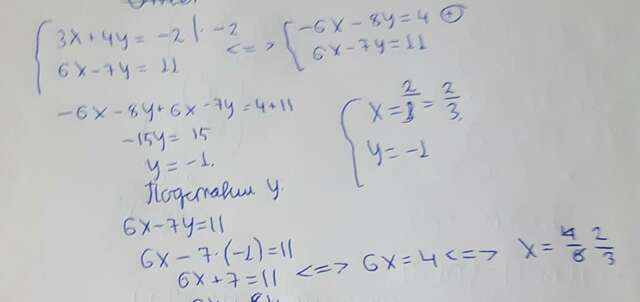 3x+4y = -2 | · -2
6x-7y = 11
<=>
-6x-8y=4 ⊕
6x-7y=11
-6x-8y+6x-7y=4+11
-15y= 15
y= -1.
x= 2/3 = 2/3.
y= -1
Подставим y.
6x-7y=11
6x-7·(-1)=11
6x+7=11 <=> 6x=4 <=> x= 4/6 2/3